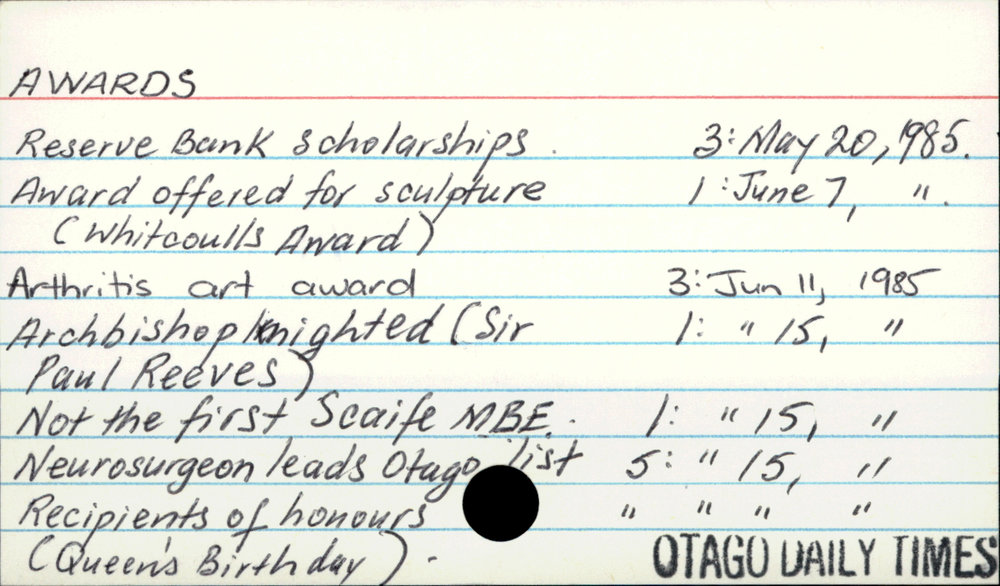 AWARDS
Reserve Bank scholarships. 3: May 20, 1985.
Award offered for sculpture 1: June 7, ".
(Whitcoulls Award)
Arthritis art award 3: Jun 11, 1985
Archbishop knighted (Sir 1: " 15, "
Paul Reeves)
Not the first Scaife MBE. 1: " 15, "
Neurosurgeon leads Otago list 5: " 15, "
Recipients of honours " " " "
(Queen's Birthday).
OTAGO DAILY TIMES